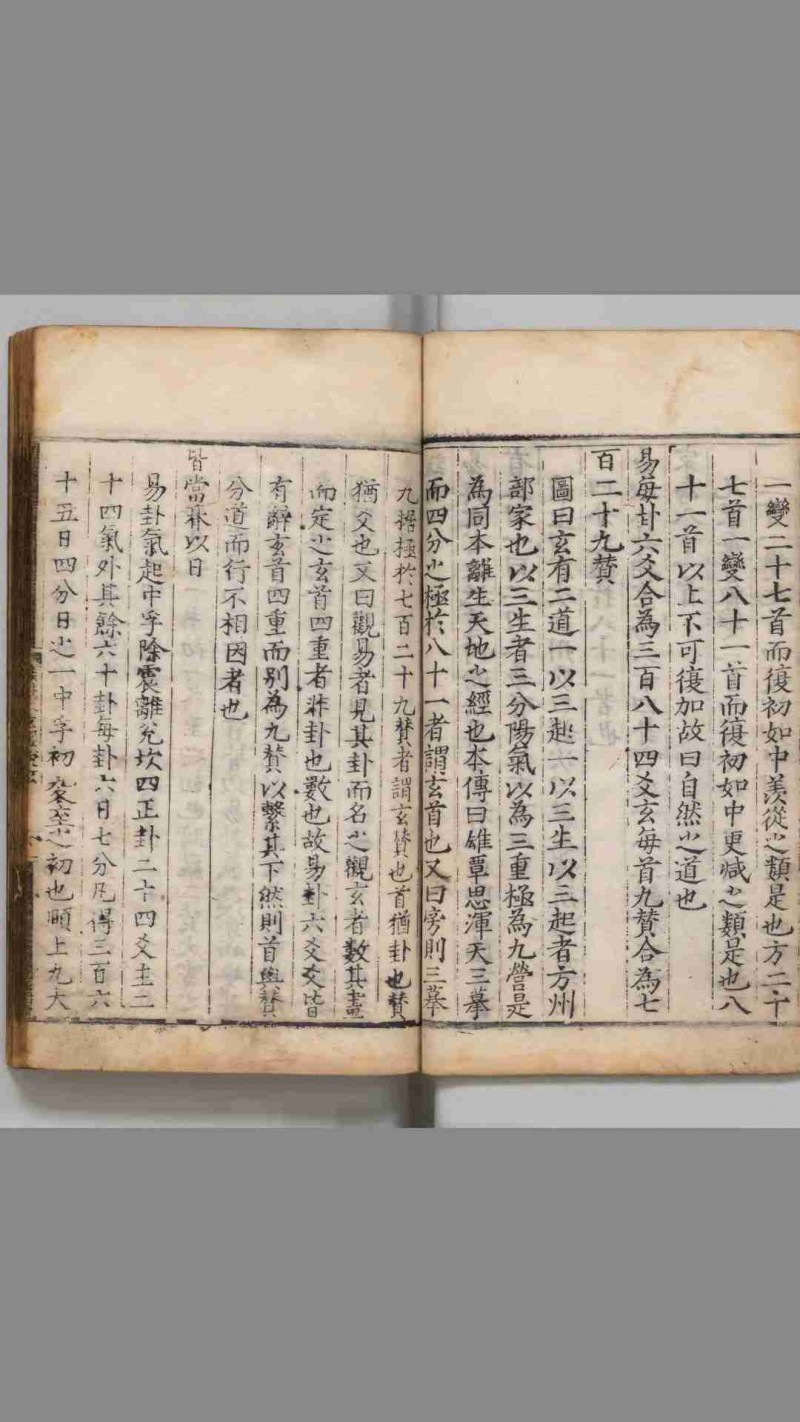 一變二十七首而復初如中羨從之類是也方二十
七首一變八十一首而復初如中更減之類是也八
十一首以上不可復加故曰自然之道也
易每卦六爻合為三百八十四爻玄每首九贊合為七
百二十九贊
圖曰玄有二道一以三起一以三生以三起者方州
部家也以三生者三分陽氣以為三重極為九營是
為同本離生天地之經也本傳曰雄覃思渾天三摹
而四分之極於八十一者謂玄首也又曰旁則三摹
九据極於七百二十九贊者謂玄贊也首猶卦也贊
猶爻也又曰觀易者見其卦而名之觀玄者數其畫
而定之玄首四重者非卦也數也故易卦六爻爻皆
有辭玄首四重而別為九贊以繫其下然則首與贊
分道而行不相因者也
皆當朞以日
易卦氣起中孚除震離兌坎四正卦二十四爻主二
十四氣外其餘六十卦每卦六日七分凡得三百六
十五日四分日之一中孚初冬至之初也頤上九大